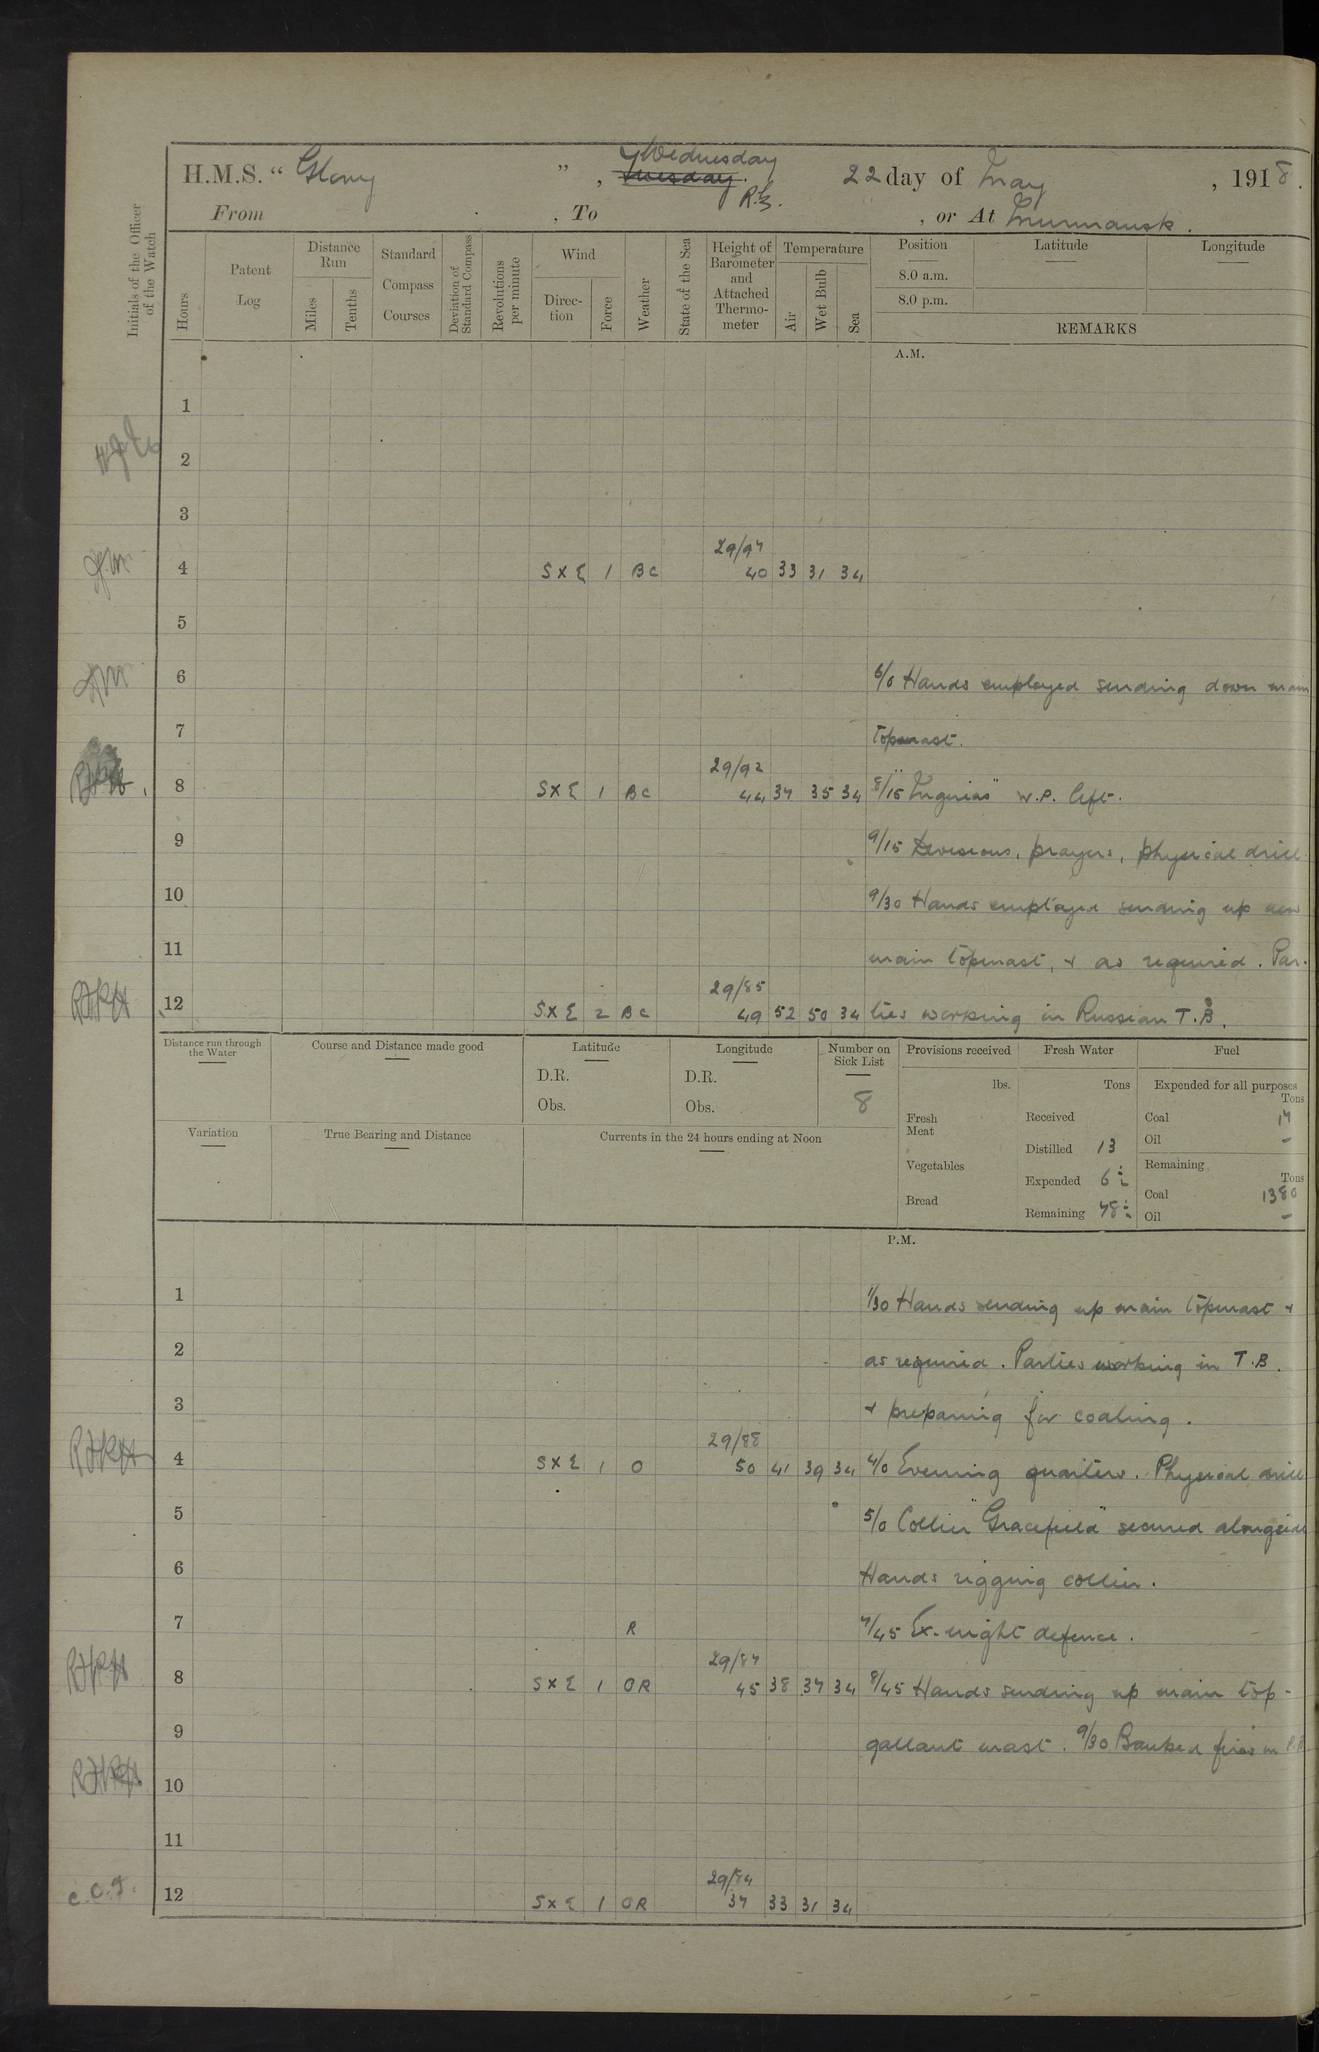 H.M.S. “ Glory ” , Wednesday Tuesday. 22 day of May , 1918.
From , To , or At Murmansk.
Initials of the Officer of the Watch
Hours
Patent Log
Distance Run
Miles
Tenths
Standard Compass Courses
Deviation of Standard Compass
Revolutions per minute
Wind
Direction
Force
Weather
State of the Sea
Height of Barometer and Attached Thermometer
Temperature
Air
Wet Bulb
Sea
Position Latitude Longitude
8.0 a.m.
8.0 p.m.
REMARKS
A.M.
1
2
3
29/97
4 S X E 1 BC 40 33 31 34
5
6 6/0 Hands employed sending down main
7 topmast.
29/92
8 S X E 1 BC 44 37 35 34 8/15 W.P. left.
9 9/15 Divisions, prayers, physical drill
10 9/30 Hands employed sending up new
11 main topmast, & as required. Par-
29/85
12 S X E 2 BC 49 52 50 34 ties working in Russian T.B.
Distance run through the Water
Course and Distance made good
Latitude
D.R.
Obs.
Longitude
D.R.
Obs.
Number on Sick List
8
Provisions received
lbs.
Fresh Meat
Vegetables
Bread
Fresh Water
Tons
Received
Distilled 13
Expended 6½
Remaining 78½
Fuel
Expended for all purposes
Tons
Coal 17
Oil -
Remaining
Tons
Coal 1380
Oil -
Variation
True Bearing and Distance
Currents in the 24 hours ending at Noon
P.M.
1 1/30 Hands sending up main topmast &
2 as required. Parties working in T.B.
3 & preparing for coaling.
29/88
4 S X E 1 O 50 41 39 34 4/0 Evening quarters. Physical drill
5 5/0 Collier "Gracefield" secured alongside
6 Hands rigging collier.
7 R 7/45 Ex. night defence.
29/87
8 S X E 1 OR 45 38 37 34 8/45 Hands sending up main top-
9 gallant mast. 9/30 Banked fires in
10
11
29/84
12 S X E 1 OR 37 33 31 34